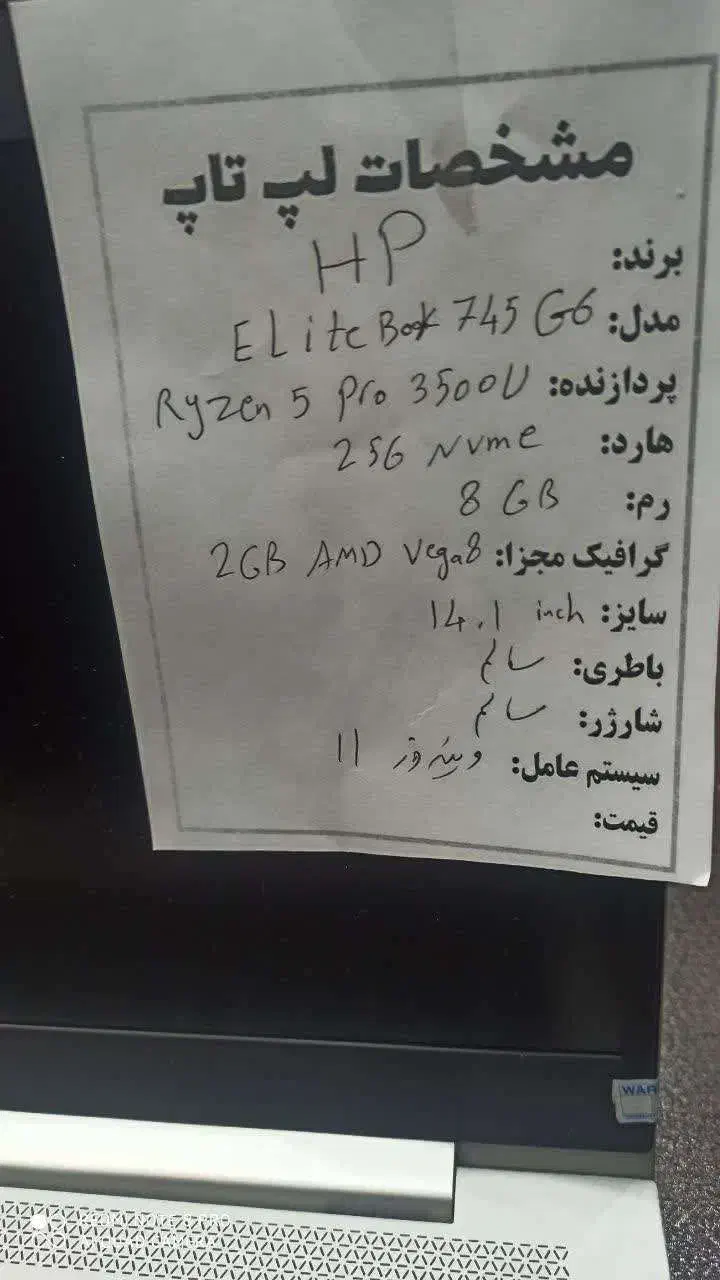 مشخصات لپ تاپ
برند: HP
مدل: ELiteBook 745 G6
پردازنده: Ryzen 5 Pro 3500U
هارد: 256 Nvme
رم: 8 GB
گرافیک مجزا: 2GB AMD Vega8
سایز: 14.1 inch
باطری: سالم
شارژر: سالم
سیستم عامل: ویندوز 11
قیمت:
WAR
REDMI NOTE 8 PRO